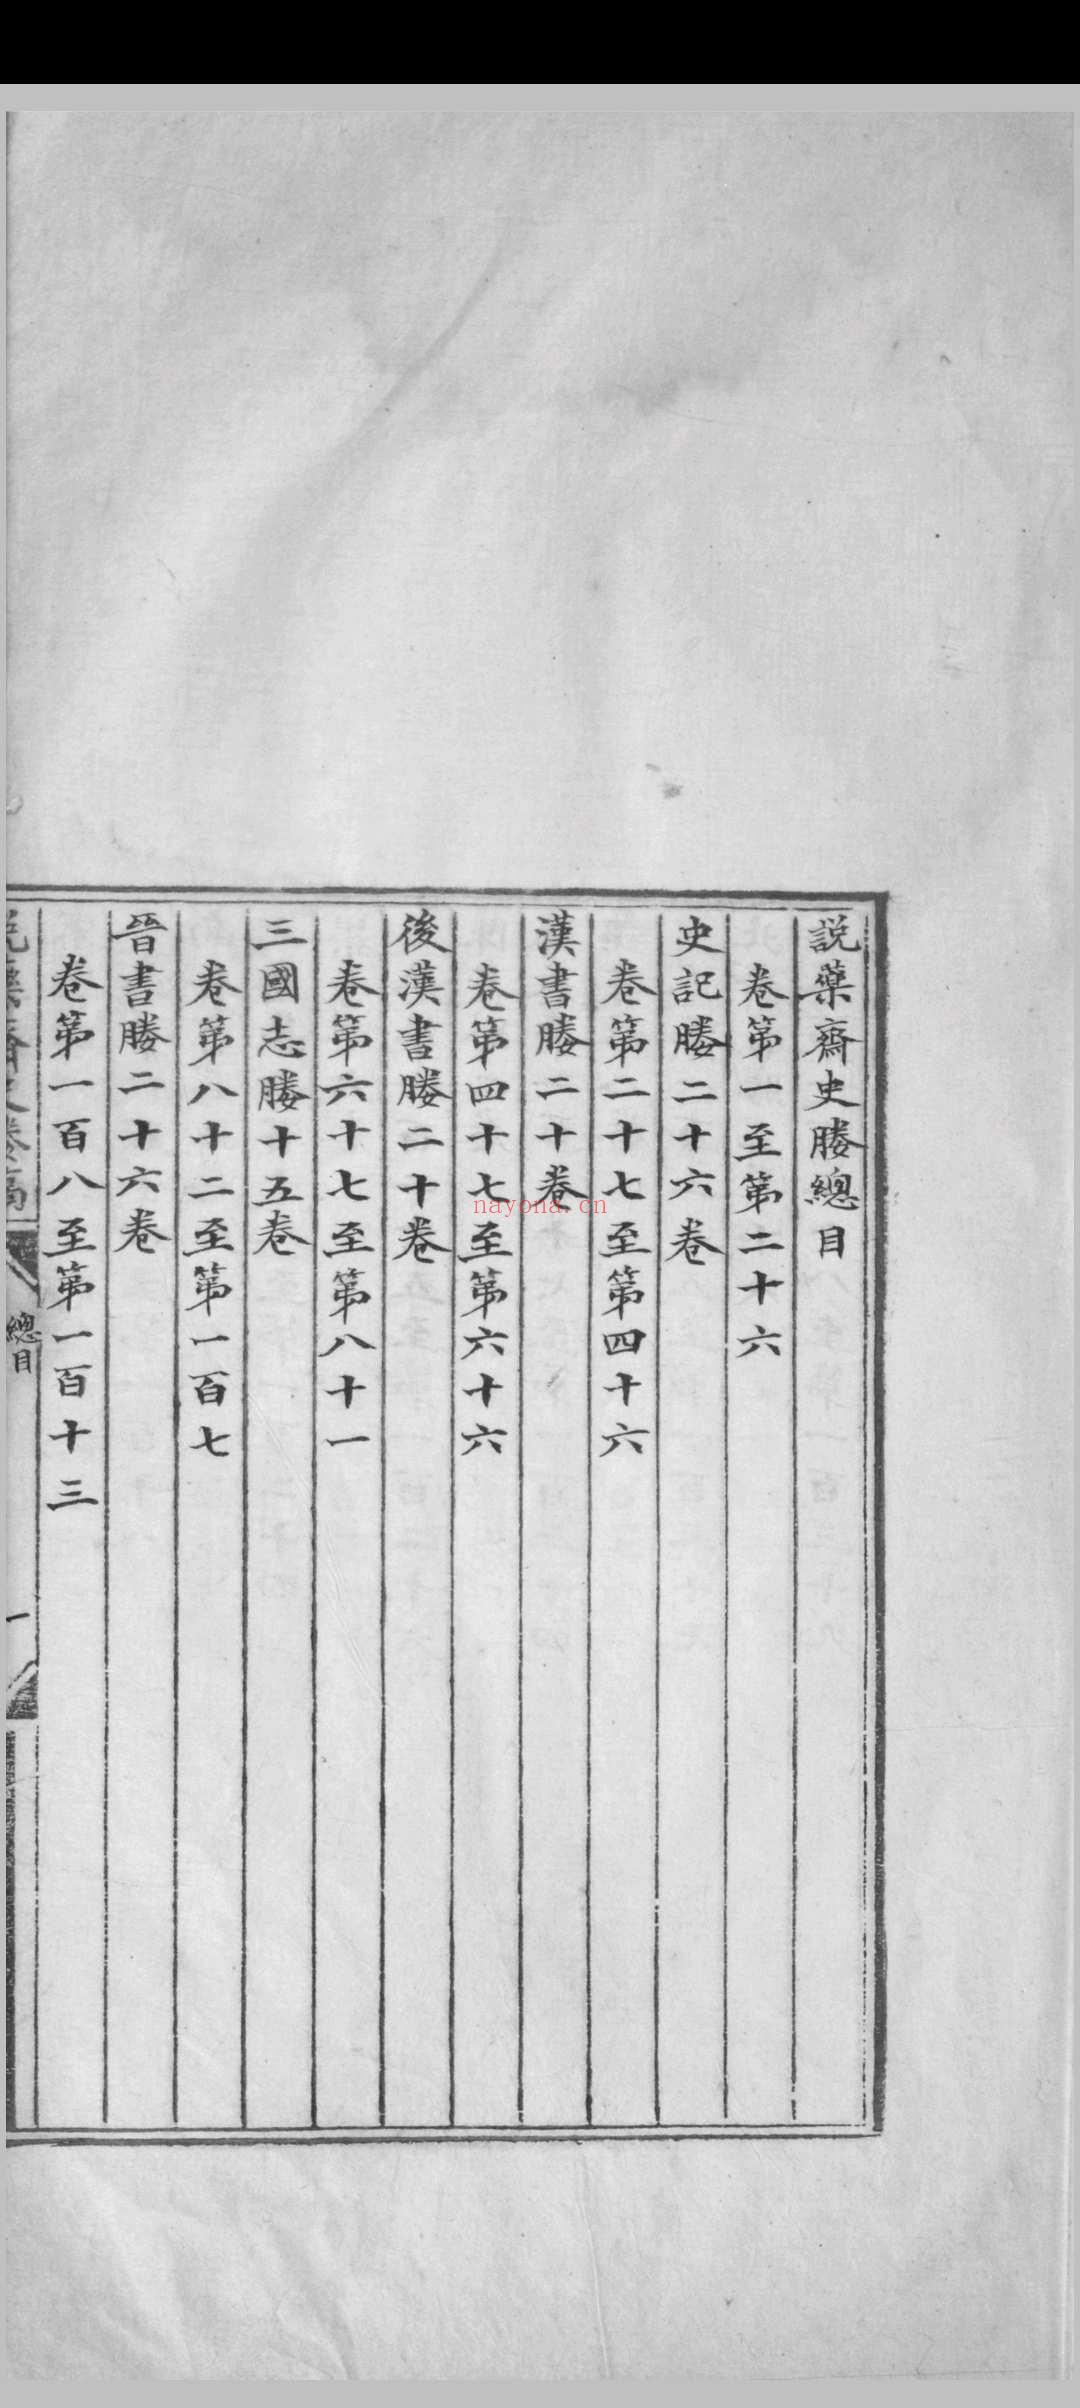 説藥齋史媵總目
卷第一至第二十六
史記媵二十六卷
卷第二十七至第四十六
漢書媵二十卷
卷第四十七至第六十六
後漢書媵二十卷
卷第六十七至第八十一
三國志媵十五卷
卷第八十二至第一百七
晉書媵二十六卷
卷第一百八至第一百十三
總目
一
nayona.cn